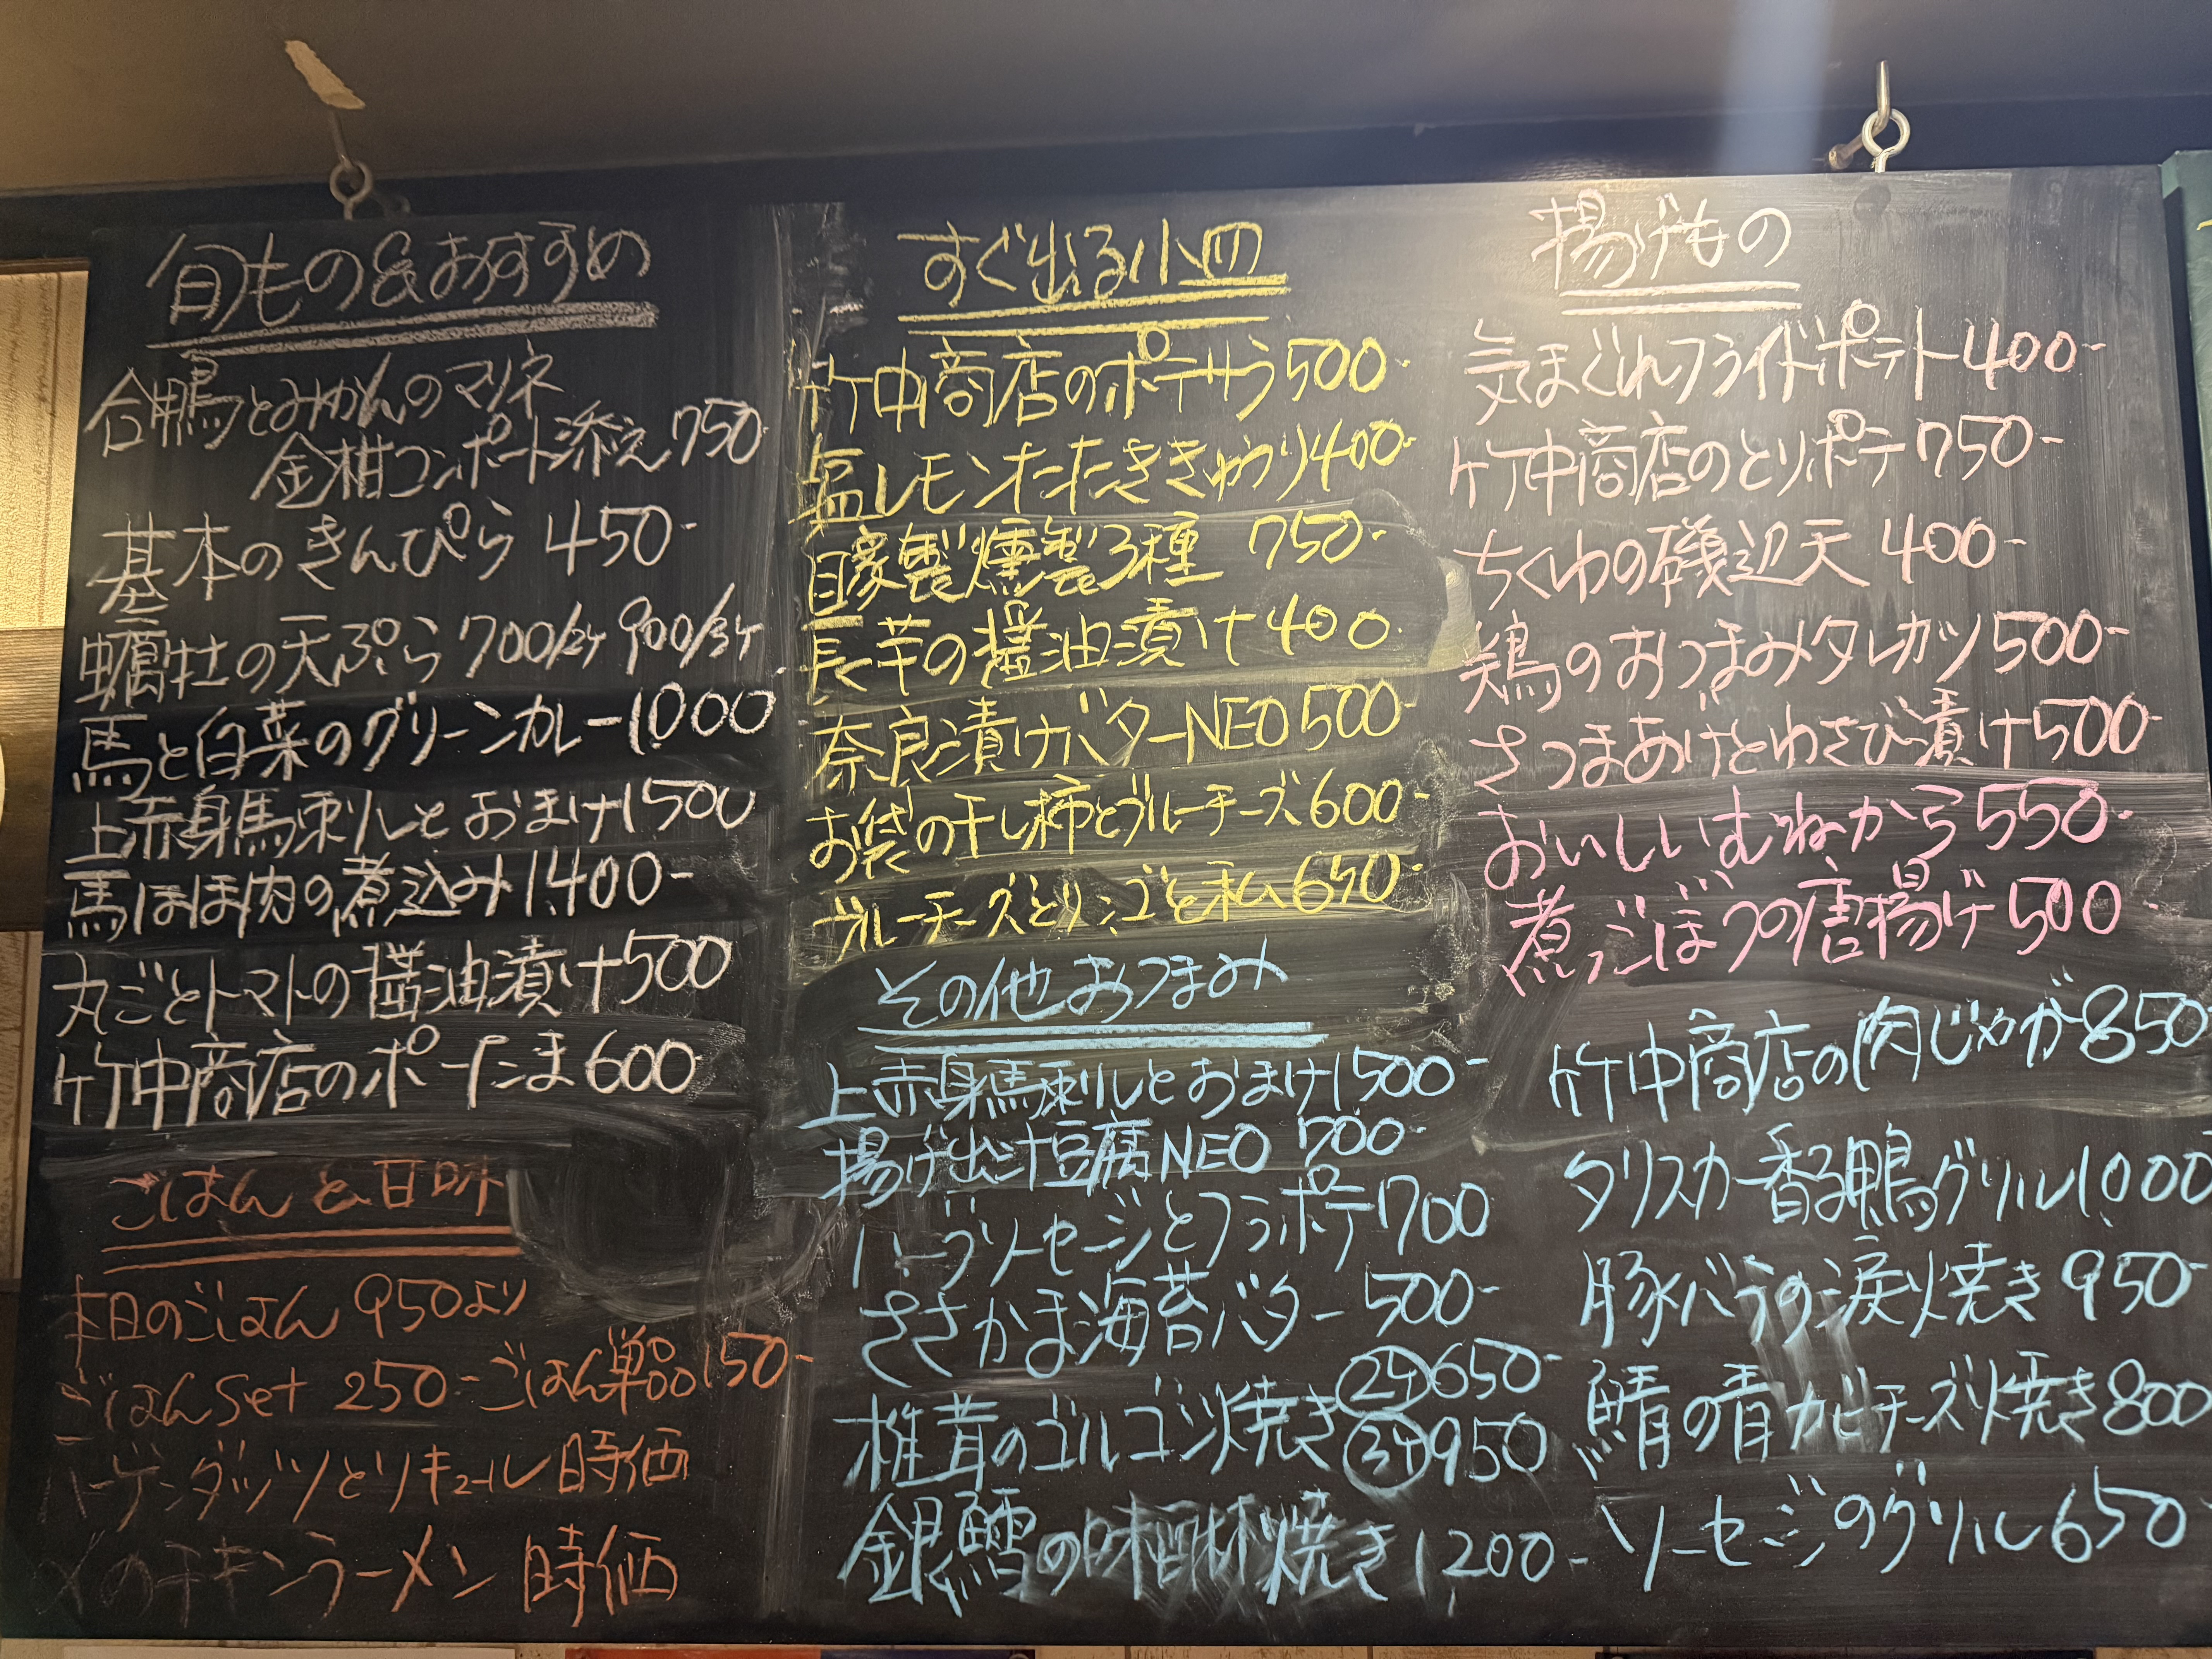 旬もの&おすすめ
合鴨とみかんのマリネ
金柑コンポート添え 750-
基本のきんぴら 450-
蠣牡の天ぷら 700/2ケ 900/3ケ
馬と白菜のグリーンカレー 1,000-
上赤身馬刺しとおまけ 1500
馬ほほ肉の煮込み 1,400-
丸ごとトマトの醤油漬け 500
竹中商店のポーたま 600
ごはんと甘味
本日のごはん 950より
ごはんSet 250- ごはん単品 150-
ハーゲンダッツとリキュール 時価
〆のチキンラーメン 時価
すぐ出る小皿
竹中商店のポテサラ 500-
塩レモンたたききゅうり 400-
自家製燻製3種 750-
長芋の醤油漬け 400-
奈良漬けバターNEO 500-
お袋の干し柿とブルーチーズ 600-
ブルーチーズとリンゴと私 650-
その他おつまみ
上赤身馬刺しとおまけ 1500-
揚げ出汁豆腐NEO 700-
ハーブソーセージとフラポテ 700
ささかま海苔バター 500-
椎茸のゴルゴン焼き ②ケ 650-
③ケ 950
銀鱈の味醂焼き 1,200-
揚げもの
気まぐれフライドポテト 400-
竹中商店のとりポテ 750-
ちくわの磯辺天 400-
鶏のおつまみタレカツ 500-
さつまあげとわさび漬け 500-
おいしいむねから 550-
煮ごぼうの唐揚げ 500
竹中商店の肉じゃが 850
タリスカー香る鴨グリル 1,000
豚バラの涙焼き 950-
鯖の青カビチーズ焼き 800
ソーセージのグリル 650-